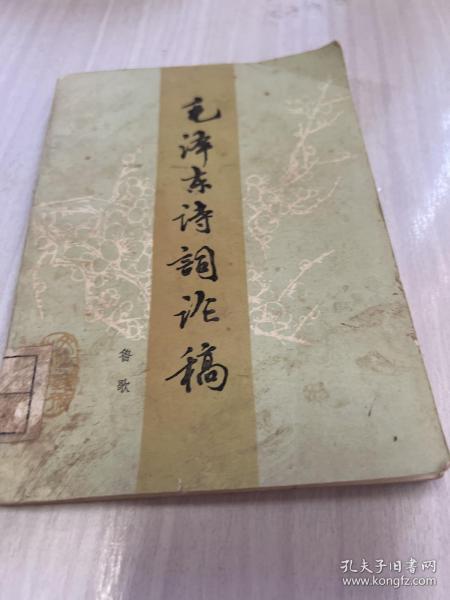 毛泽东诗词论稿
鲁歌
孔夫子旧书网
www.kongfz.com